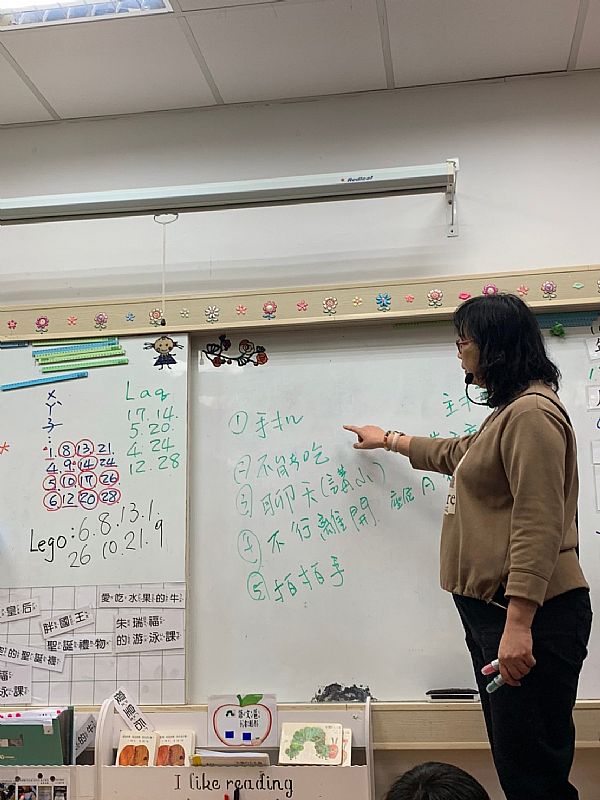 Redleaf
Laq
17. 14.
5. 20.
4. 24
12. 28
1. 8 13 21.
4. 9. 14 24
5 10 17 26
6 12 20 28
Lego: 6. 8. 13. 1.
26 10. 21. 9
① 手机
② 不能吃
③ 聊天(講小)
④ 不行離開
⑤ 拍拍手
主
座底 A
皇后
胖國王
愛吃水果的牛
聖誕禮物
朱瑞福
的游泳課
的聖誕禮
福
泳課
I like reading